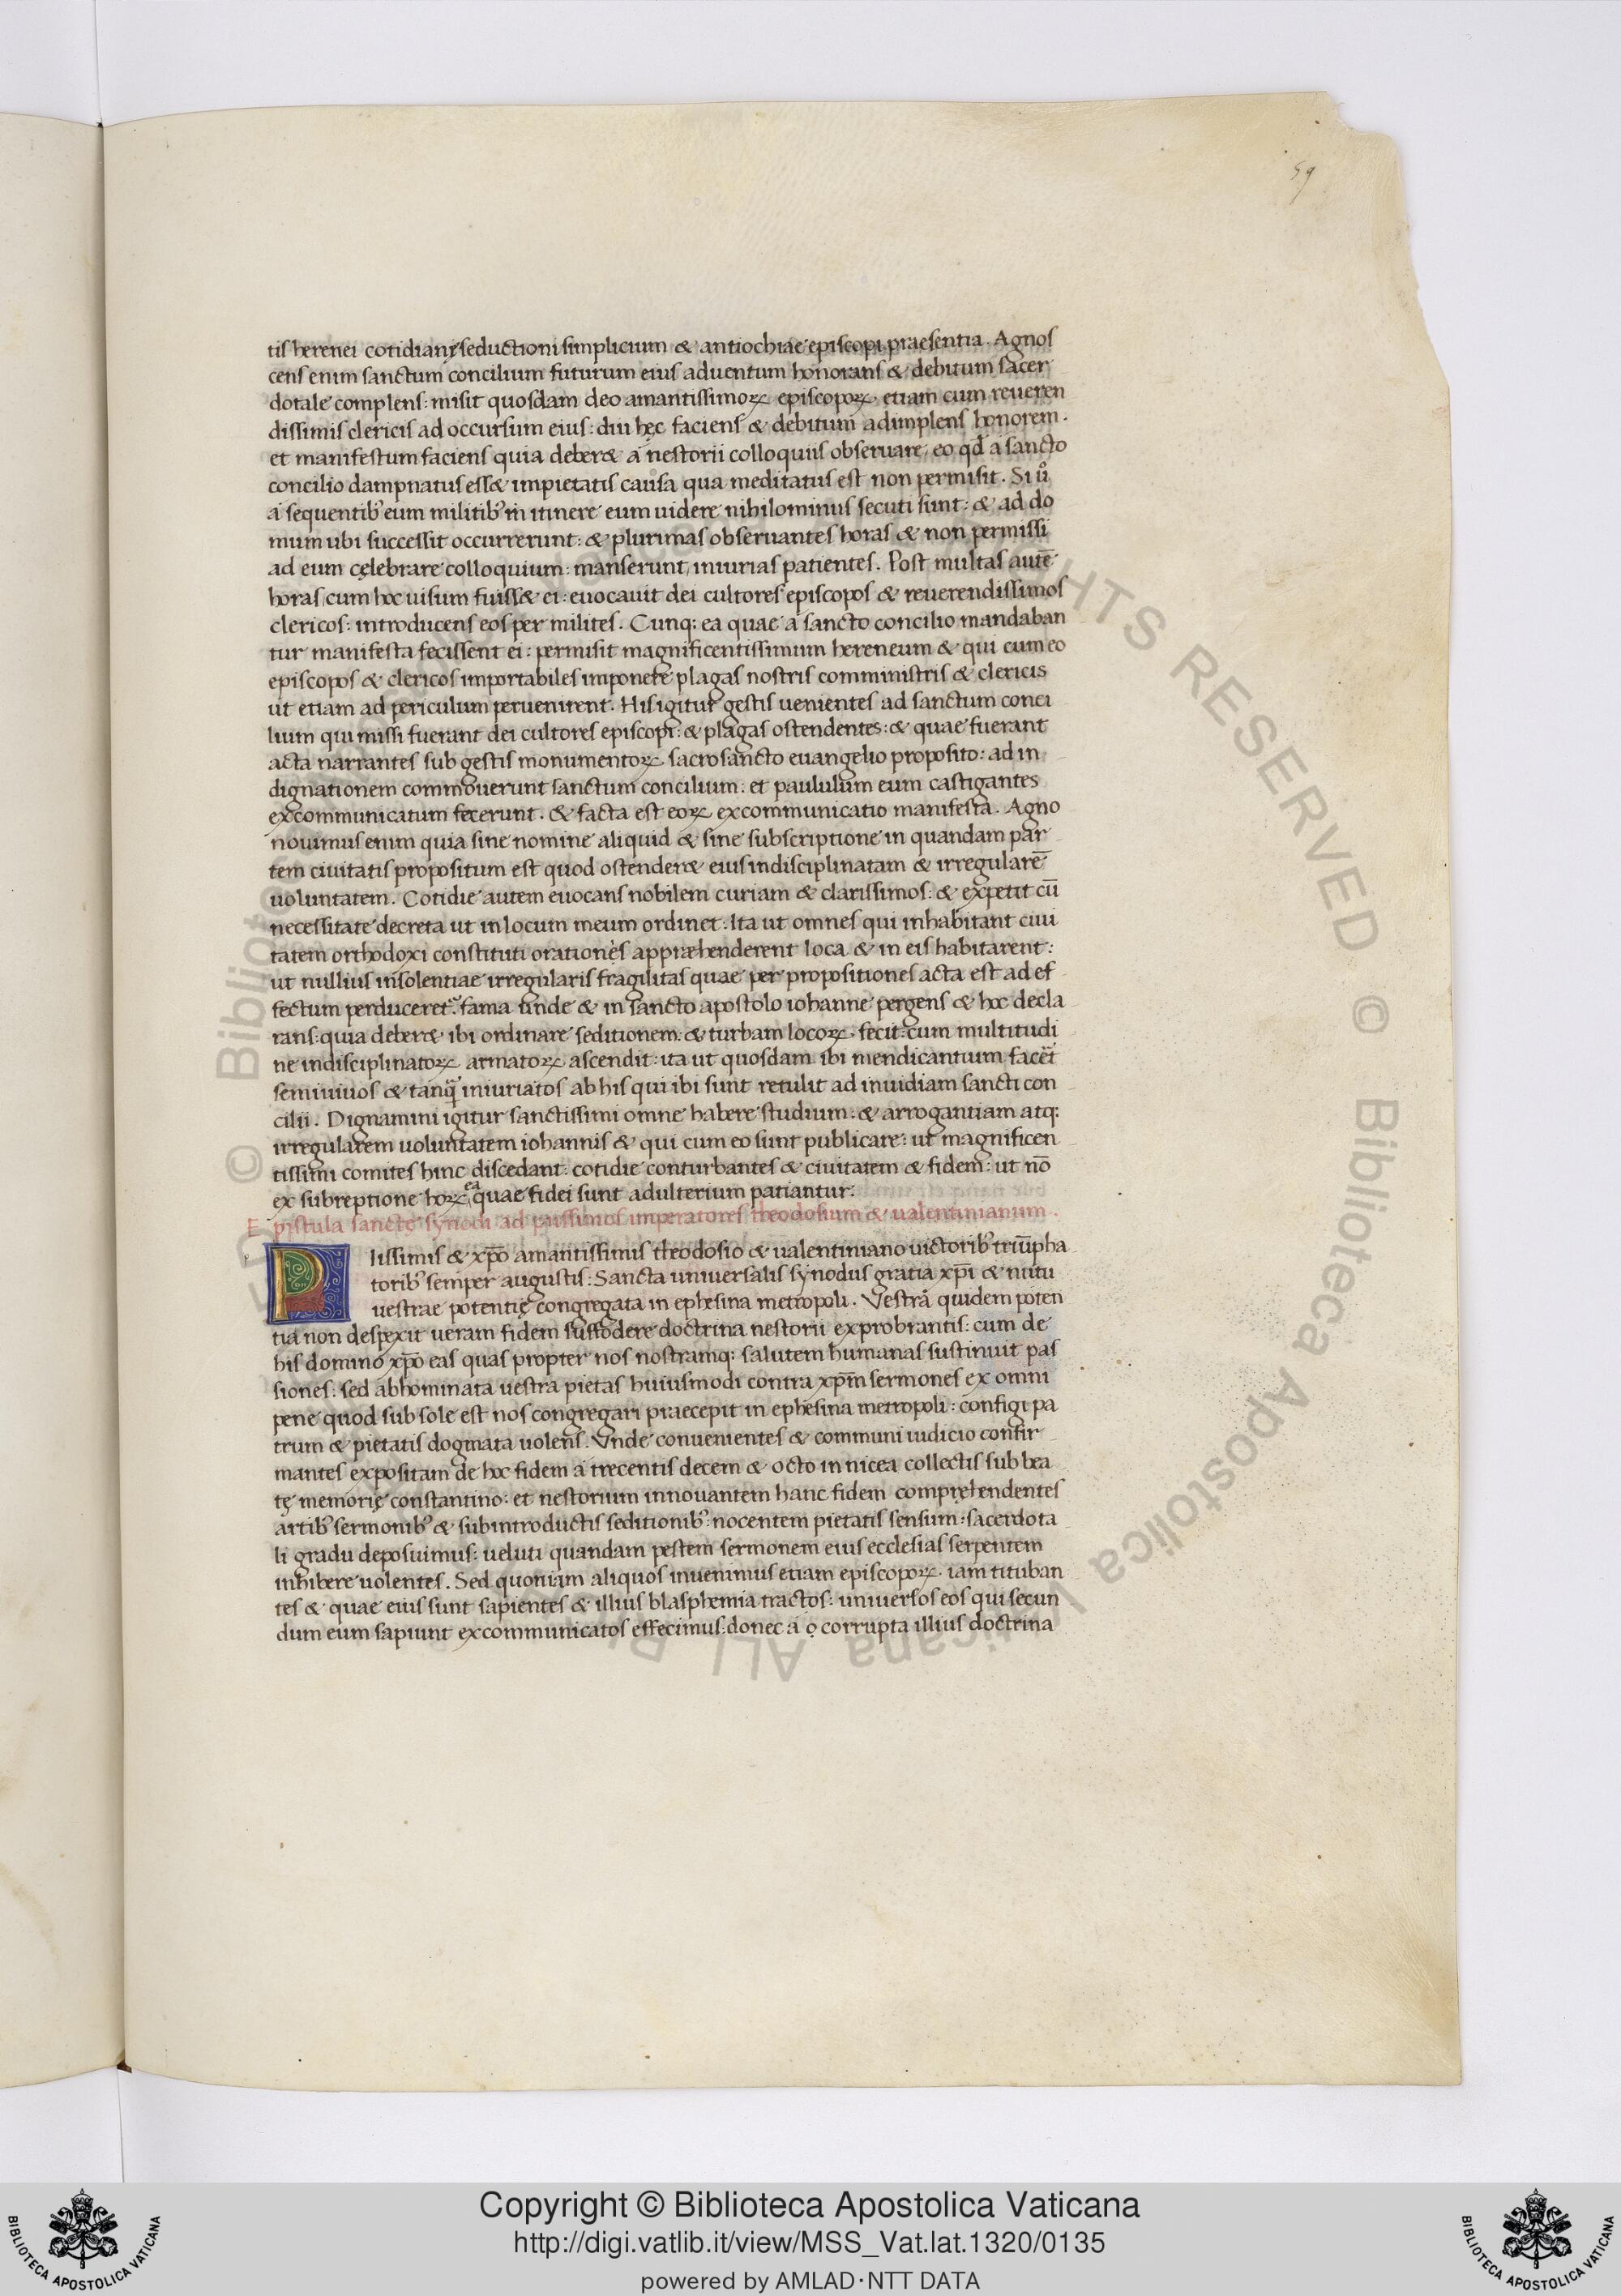 59
tis herenei cotidianę seductioni simplicium & antiochiae episcopi praesentia. Agnos
cens enim sanctum concilium futurum eius aduentum honorans & debitum sacer
dotale complens: misit quosdam deo amantissimoꝝ episcopoꝝ. etiam cum reueren
dissimis clericis ad occursum eius: diu hęc faciens & debitum adimplens honorem.
et manifestum faciens quia deber& a nestorii colloquiis obseruare, eo qđ a sancto
concilio dampnatus ess& impietatis causa qua meditatus est non permisit. Si ů
a sequentib' eum militib' in itinere eum uidere nihilominus secuti sunt: & ad do
mum ubi successit occurrerunt: & plurimas obseruantes horas & non permissi
ad eum cęlebrare colloquium: manserunt iniurias patientes. Post multas autē
horas cum hoc uisum fuiss& ei: euocauit dei cultores episcopos & reuerendissimos
clericos: introducens eos per milites. Cunq: ea quae a sancto concilio mandaban
tur manifesta fecissent ei: permisit magnificentissimum hereneum & qui cum eo
episcopos & clericos importabiles imponere plagas nostris comministris & clericis
ut etiam ad periculum peruenirent. His igitur gestis uenientes ad sanctum conci
lium qui missi fuerant dei cultores episcopi: & plagas ostendentes: & quae fuerant
acta narrantes sub gestis monumentoꝝ sacrosancto euangelio proposito: ad in
dignationem commouerunt sanctum concilium: et paululum eum castigantes
excommunicatum fecerunt. & facta est eoꝝ excommunicatio manifesta. Agno
nouimus enim quia sine nomine aliquid & sine subscriptione in quandam par
tem ciuitatis propositum est quod ostender& eius indisciplinatam & irregularē
uoluntatem. Cotidie autem euocans nobilem curiam & clarissimos: & expetit cū
necessitate decreta ut in locum meum ordinet: Ita ut omnes qui inhabitant ciui
tatem orthodoxi constituti orationes appræhenderent loca & in eis habitarent:
ut nullius insolentiae irregularis fragilitas quae per propositiones acta est ad ef
fectum perduceret. fama unde & in sancto apostolo iohanne pergens & hoc decla
rans: quia deber& ibi ordinare seditionem: & turbam locoꝝ. fecit: cum multitudi
ne indisciplinatoꝝ armatoꝝ ascendit: ita ut quosdam ibi mendicantium facēt
seminiuos & tanq̈ iniuriatos ab his qui ibi sunt retulit ad inuidiam sancti con
cilii. Dignamini igitur sanctissimi omne habere studium: & arrogantiam atq:
irregularem uoluntatem iohannis & qui cum eo sunt publicare: ut magnificen
tissimi comites hinc discedant: cotidie conturbantes & ciuitatem & fidem: ut nō
ex subreptione hoꝝ ea quae fidei sunt adulterium patiantur:
Epistula sanctę synodi ad piissimos imperatores theodosium & ualentinianum.
PIissimis & xp̄o amantissimis theodosio & ualentiniano uictorib' triūpha
torib' semper augustis: Sancta uniuersalis synodus gratia xp̄i & nutu
uestrae potentię congregata in ephesina metropoli. Vestra quidem poten
tia non despexit ueram fidem suffodere doctrina nestorii exprobrantis: cum de
his domino xp̄o eas quas propter nos nostramq: salutem humanas sustinuit pas
siones: sed abhominata uestra pietas huiusmodi contra xp̄m sermones ex omni
pene quod sub sole est nos congregari praecepit in ephesina metropoli: configi pa
trum & pietatis dogmata uolens. Vnde conuenientes & communi iudicio confir
mantes expositam de hoc fidem a trecentis decem & octo in nicea collectis sub bea
tę memorię constantino: et nestorium innouantem hanc fidem compręhendentes
artib' sermonib' & subintroductis seditionib': nocentem pietatis sensum: sacerdota
li gradu deposuimus: ueluti quandam pestem sermonem eius ecclesias serpentem
inhibere uolentes. Sed quoniam aliquos inuenimus etiam episcopoꝝ. iam tituban
tes & quae eius sunt sapientes & illius blasphemia tractos: uniuersos eos qui secun
dum eum sapiunt excommunicatos effecimus: donec a corrupta illius doctrina
© Biblioteca Apostolica Vaticana ALL RIGHTS RESERVED © Biblioteca Apostolica Vaticana
BIBLIOTECA APOSTOLICA VATICANA
Copyright © Biblioteca Apostolica Vaticana
http://digi.vatlib.it/view/MSS_Vat.lat.1320/0135
powered by AMLAD·NTT DATA
BIBLIOTECA APOSTOLICA VATICANA